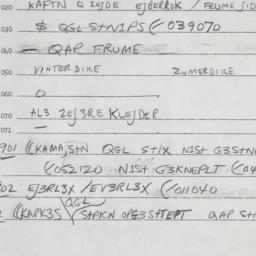 020 KAPTN Q ZEJDE EJBERROK / FRUME SID
030 $ QGL S+N1PS (/ 039070
040 — QAP FRUME
050 VINTERDIKE ZUMERDIKE
060 O
070 AL3 ZEJ3RE KLEJDER
071 —
901 ((KAMA,S+N QGL S+IX NIS+ G3S+N
(/052120 NIS+ G3KNEPLT (/04
902 EJ3RL3X /EV3RL3X (/011040
QGL
((KAPK3S S+PICN OPG3S+TEPT QAP S+